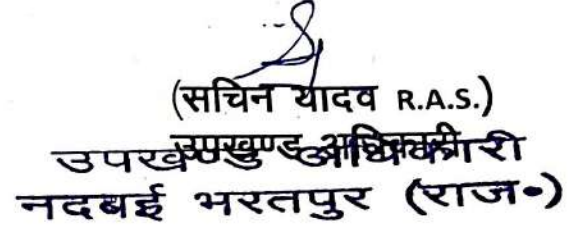 (सचिन यादव R.A.S.)
उपखण्ड अधिकारी
उपखण्ड अधिकारी
नदबई भरतपुर (राज॰)